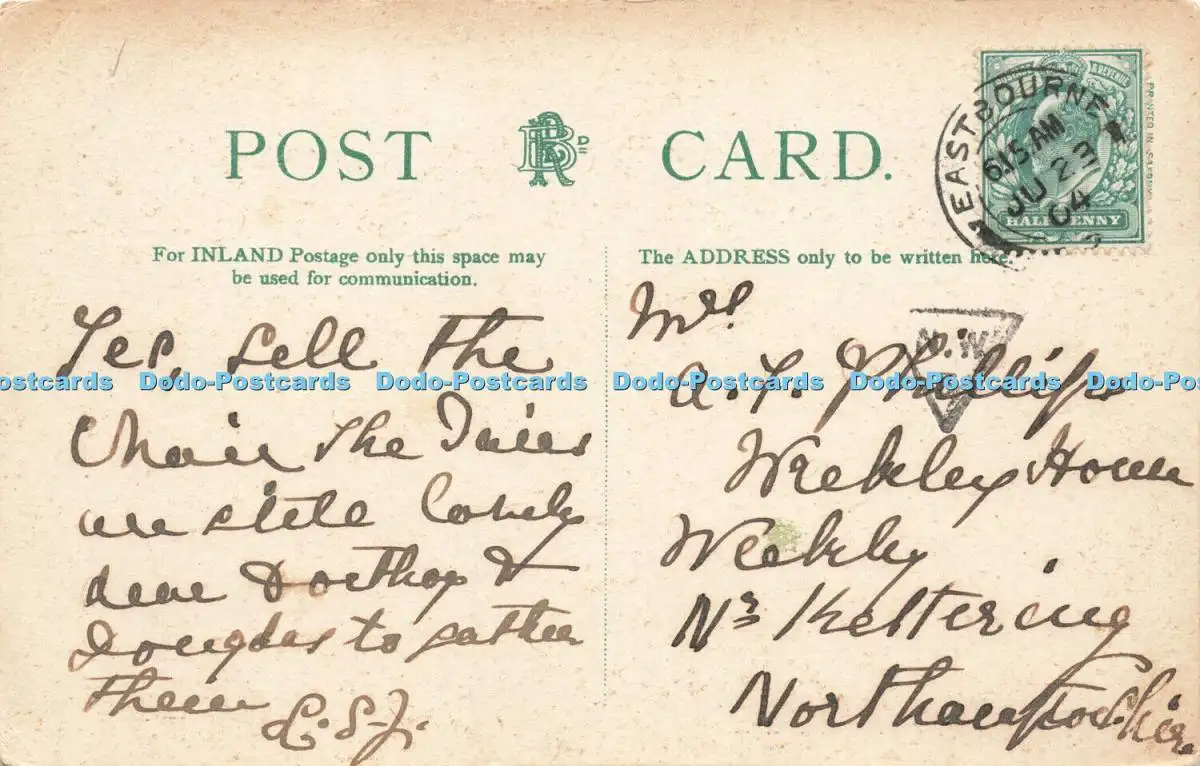 POST CARD.
EASTBOURNE
6.15 AM
JU 23
04
HALFPENNY
For INLAND Postage only this space may
be used for communication.
The ADDRESS only to be written here.
Yes, sell the
Chair the
are still lovely
dear Dorthop &
Douglas to gather
them
Mrs
A. F. Phillips
Weekley House
Weekley
Nr Kettering
Northamptonshire
Dodo-Postcards Dodo-Postcards Dodo-Postcards Dodo-Postcards Dodo-Postcards